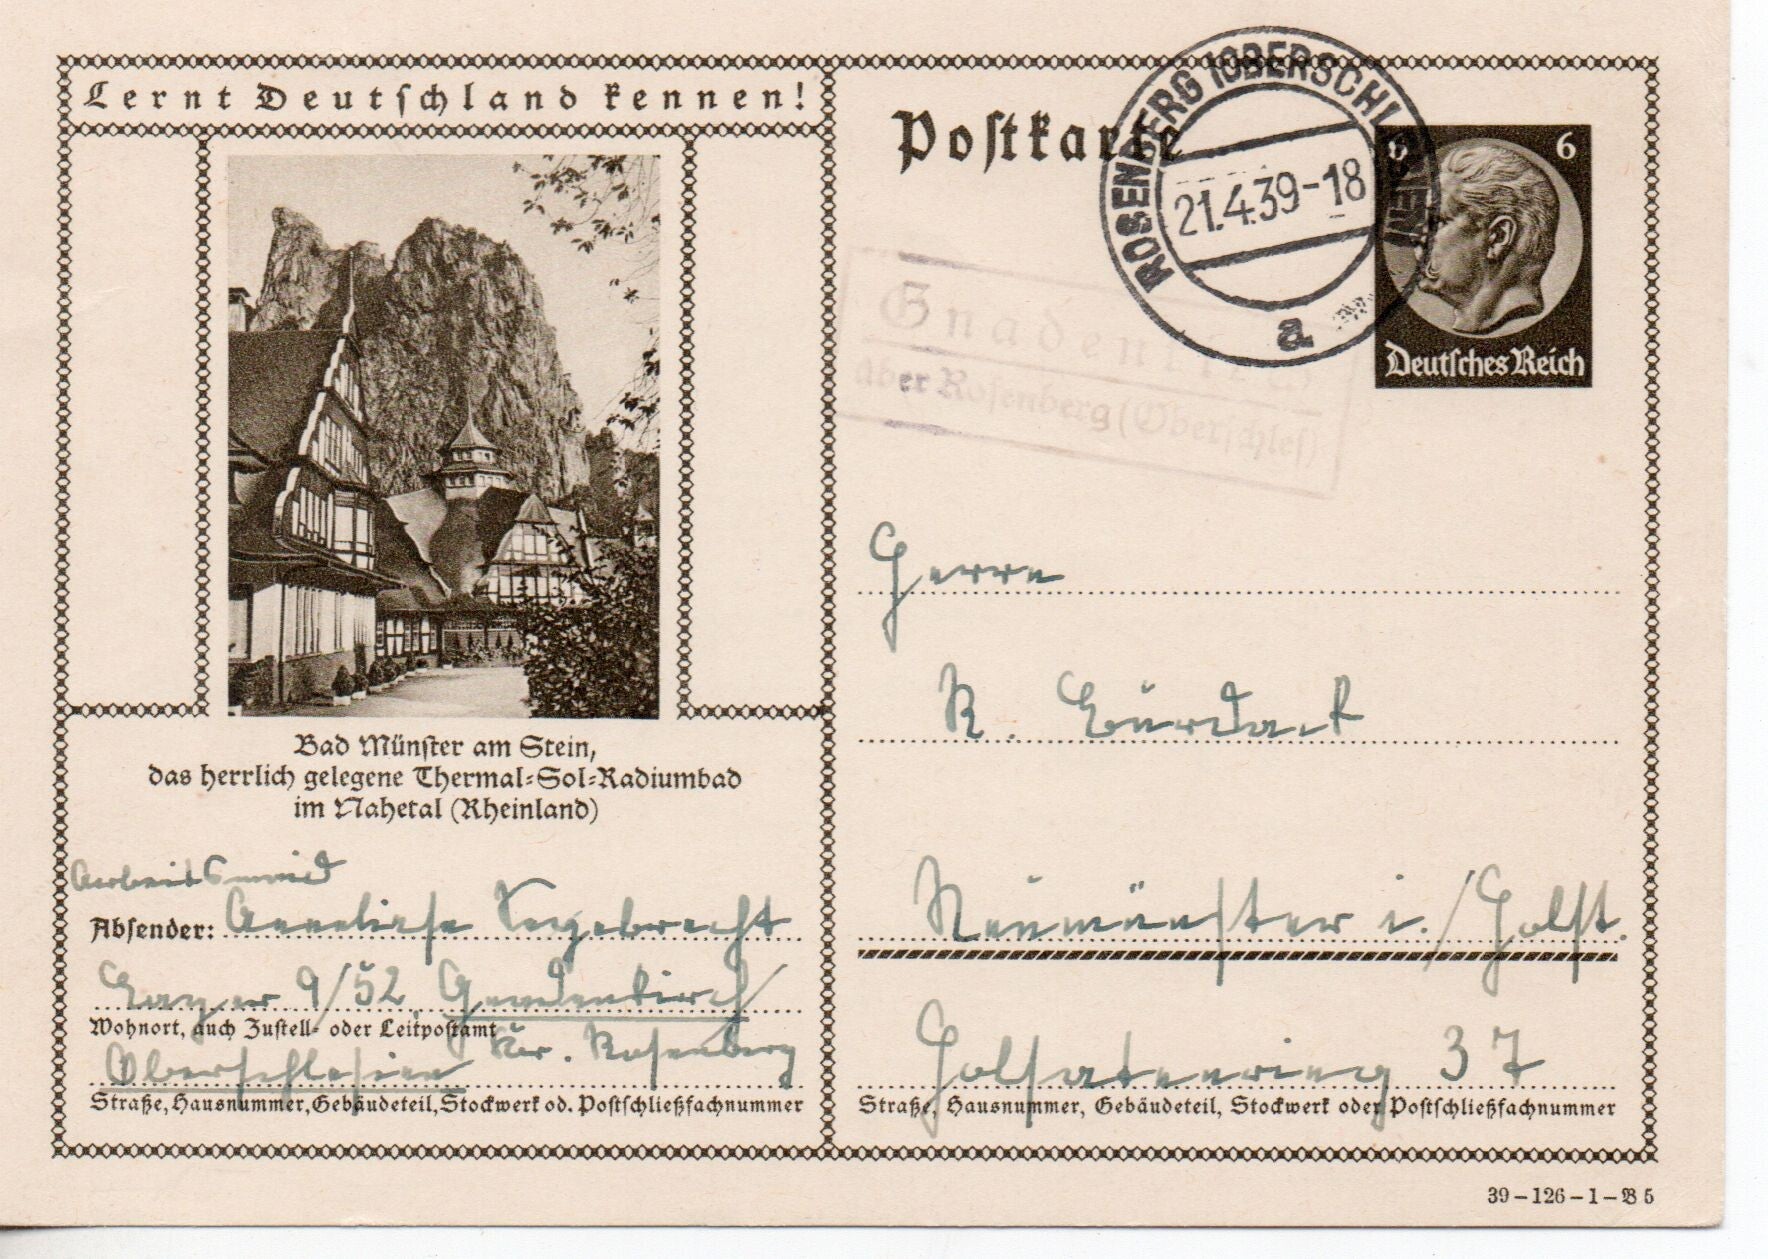 Lernt Deutschland kennen!
Bad Münster am Stein,
das herrlich gelegene Thermal-Sol-Radiumbad
im Nahetal (Rheinland)
Arbeitsmaid
Absender: Anneliese Kagebrecht
Lager 9/52 Gnadenkirch/
Wohnort, auch Zustell- oder Leitpostamt
Oberschlesien Kr. Rosenberg
Straße, Hausnummer, Gebäudeteil, Stockwerk od. Postschließfachnummer
Postkarte
ROSENBERG (OBERSCHLESIEN)
21.4.39-18
a
6 6
Deutsches Reich
Gnadenkirch
über Rosenberg (Oberschles)
Herrn
R. Burdack
Neumünster i./Holst.
Holsatenring 37
Straße, Hausnummer, Gebäudeteil, Stockwerk oder Postschließfachnummer
39-126-1-B 5